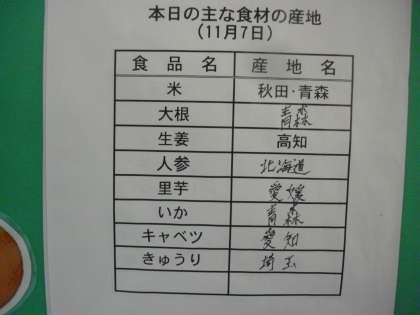 本日の主な食材の産地
(11月7日)
食品名 産地名
米 秋田・青森
大根 青森
生姜 高知
人参 北海道
里芋 愛媛
いか 青森
キャベツ 愛知
きゅうり 埼玉